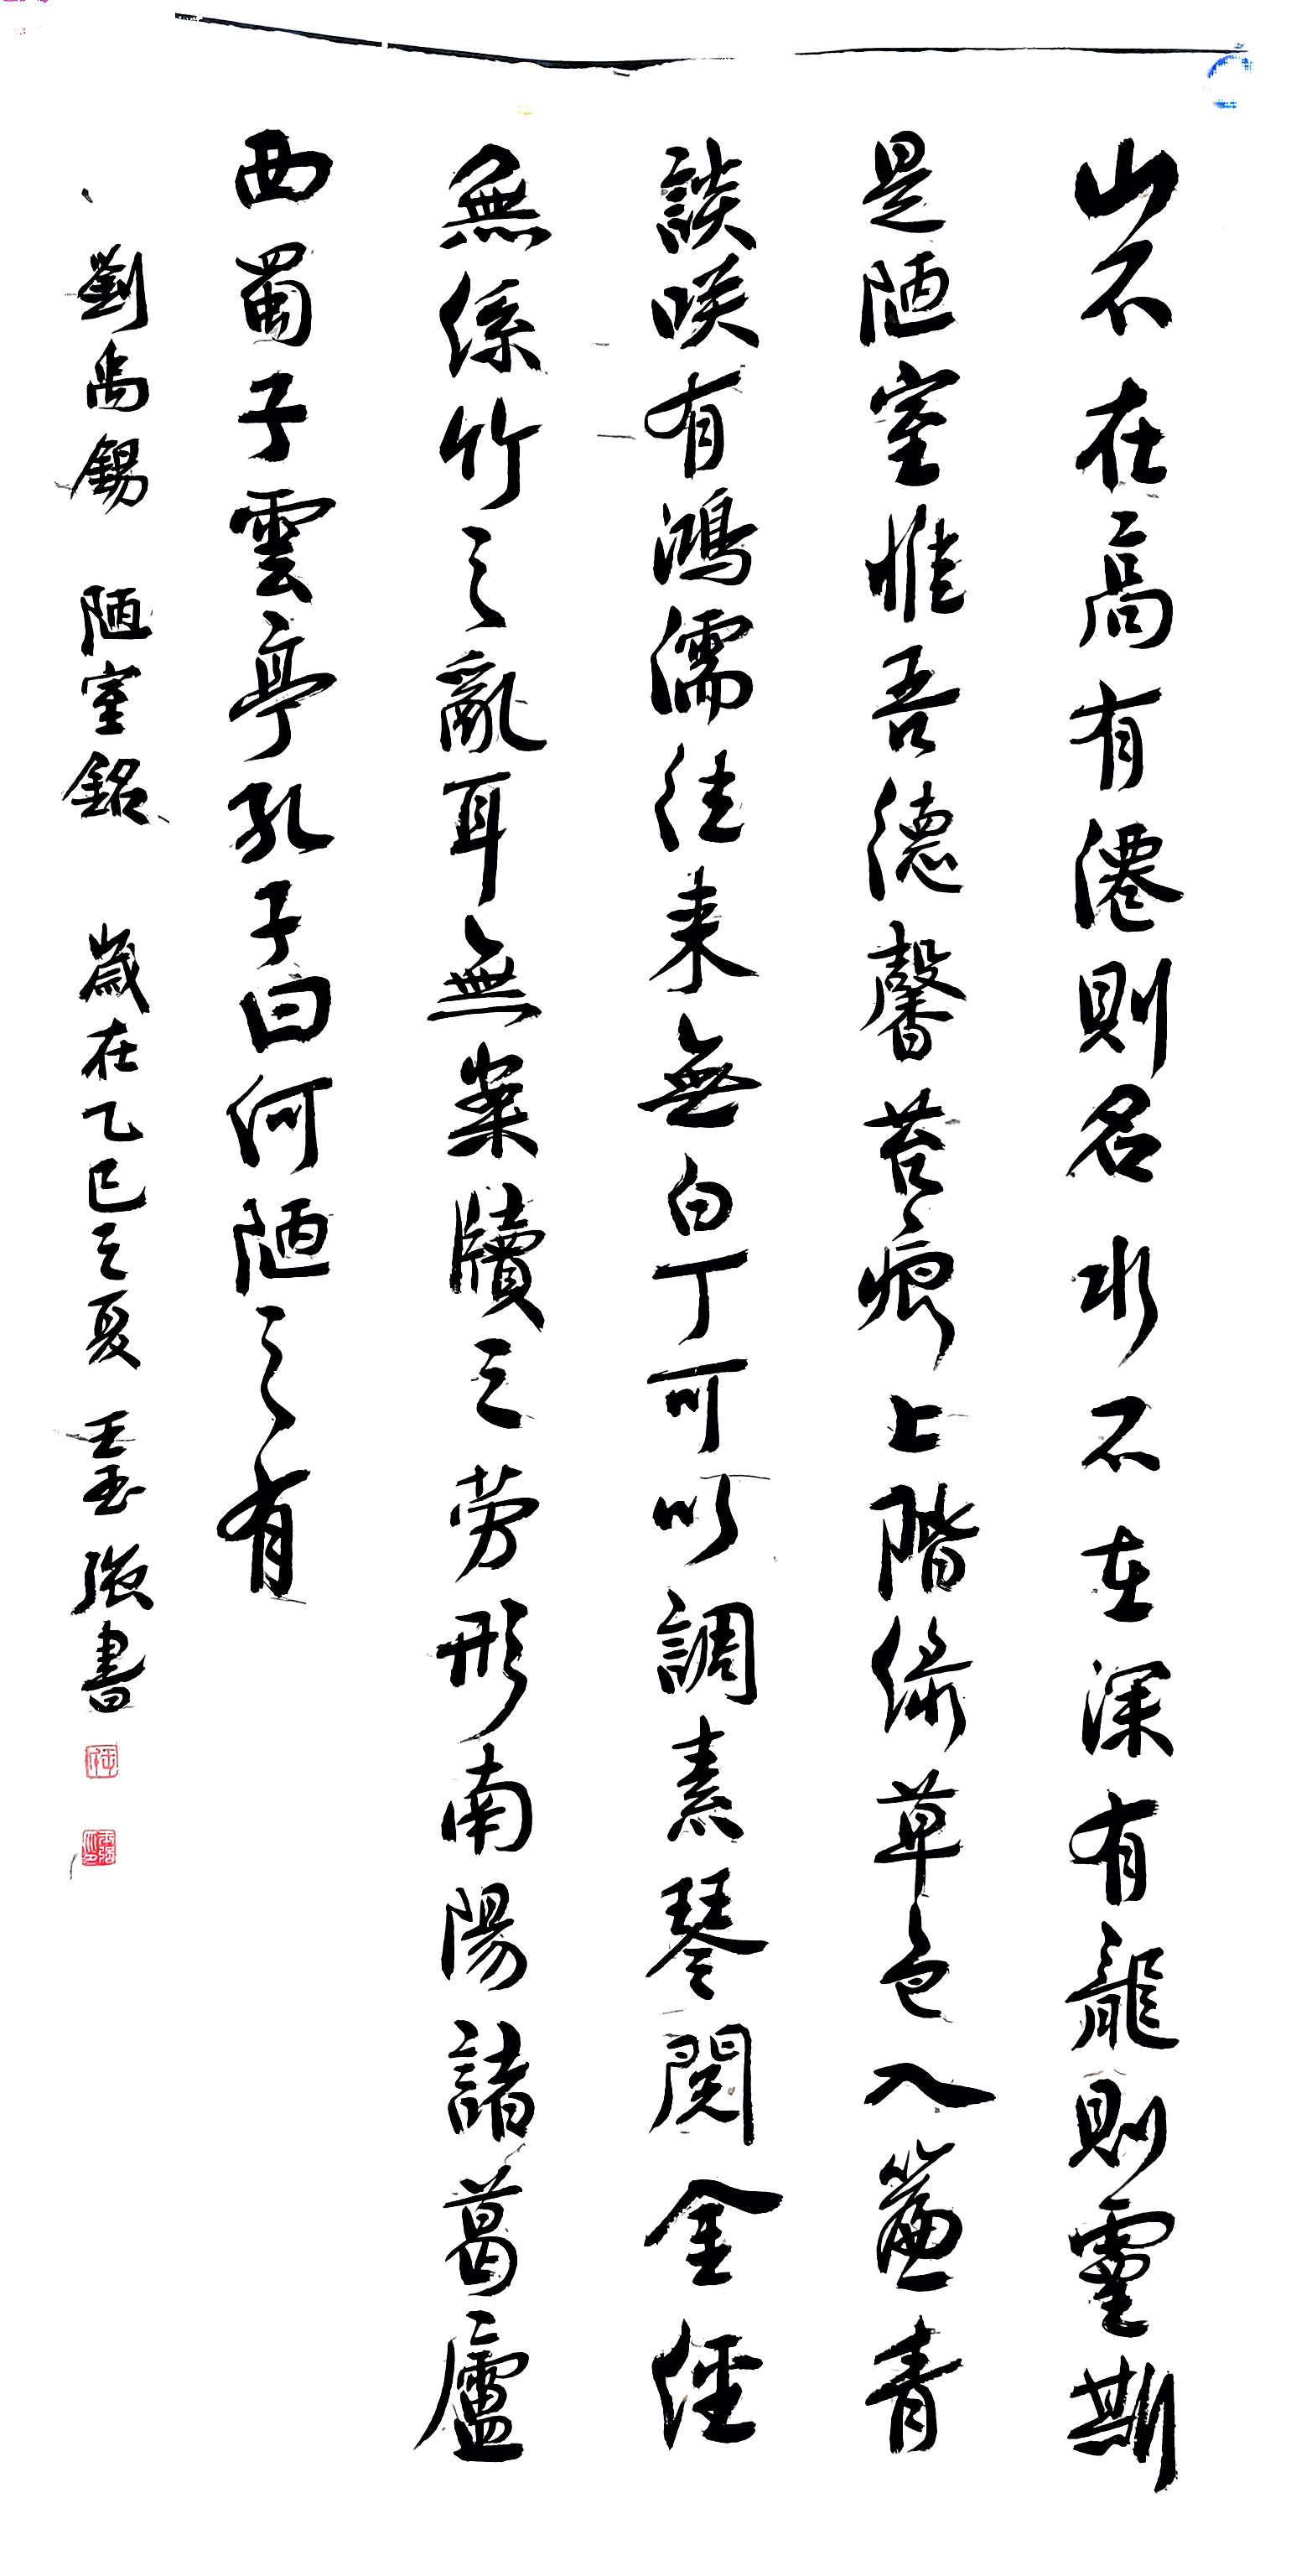 山不在高有僊則名水不在深有龍則靈斯
是陋室惟吾德馨苔痕上階緑草色入簾青
談咲有鴻儒往来無白丁可以調素琴閲金經
無係竹之亂耳無案牘之劳形南陽諸葛廬
西蜀子雲亭孔子曰何陋之有
劉禹錫 陋室銘 歲在乙巳之夏 王玉强書